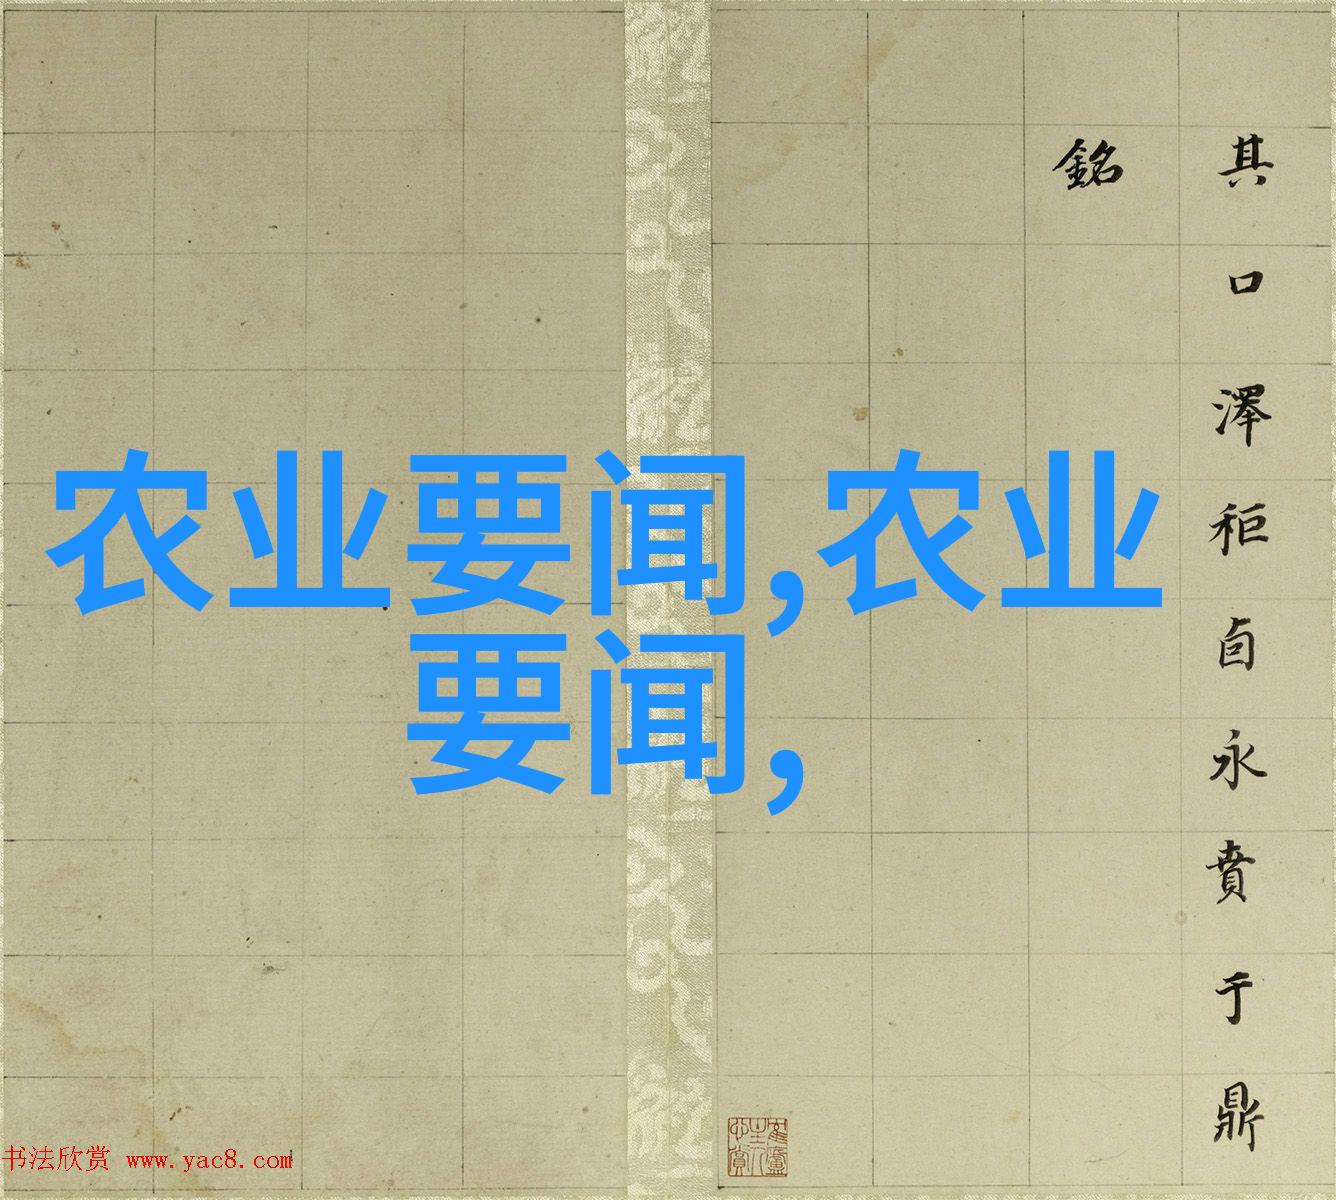 其口澤秬卣永賁于鼎
銘
农业要闻,农业
要闻,
书法欣赏 www.yac8.com